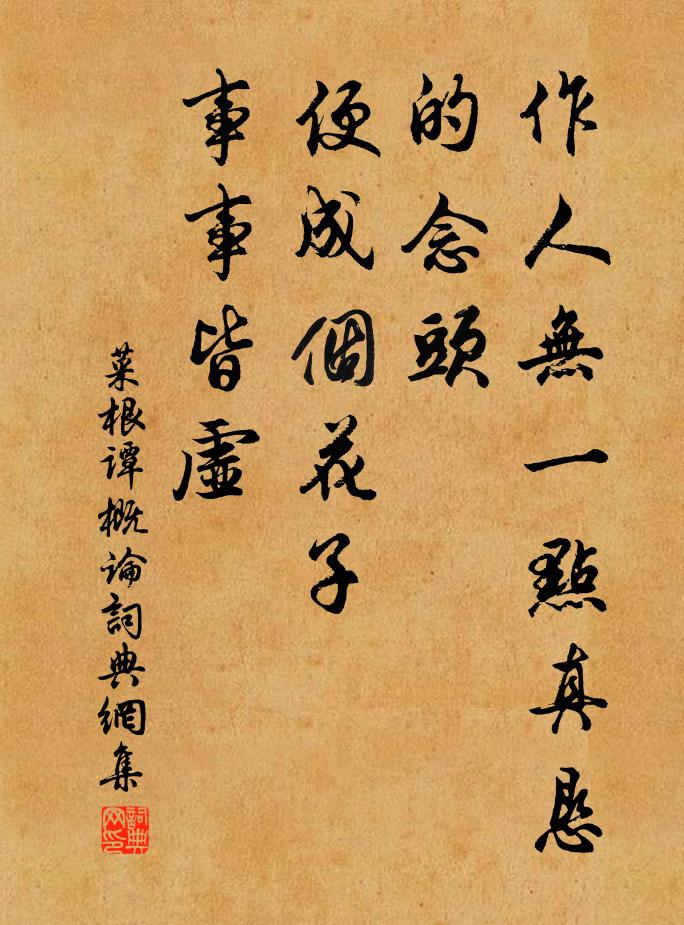 作人無一點真恳
的念頭
便成個花子
事事皆虛
菜根谭概論詞典網集
詞典网印